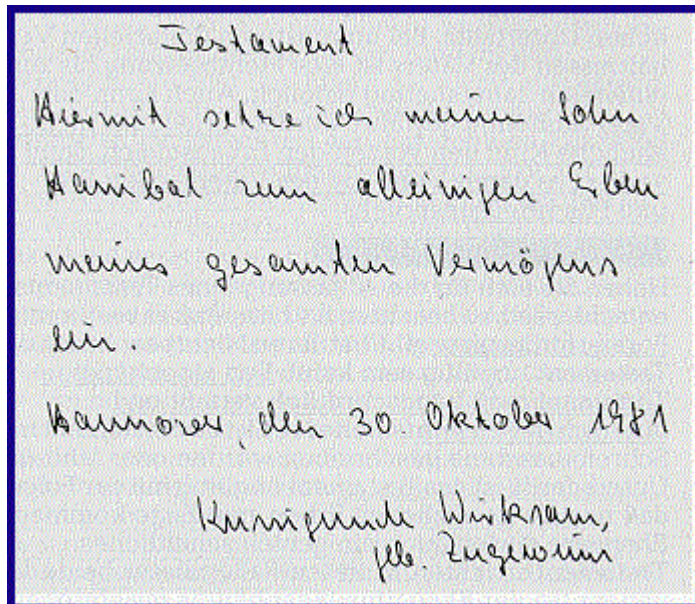 Testament
Hiermit setze ich meinen Sohn
Hannibal zum alleinigen Erben
meines gesamten Vermögens
ein.
Hannover, den 30. Oktober 1981
Kunigunde Wirksam,
geb. Zugewinn